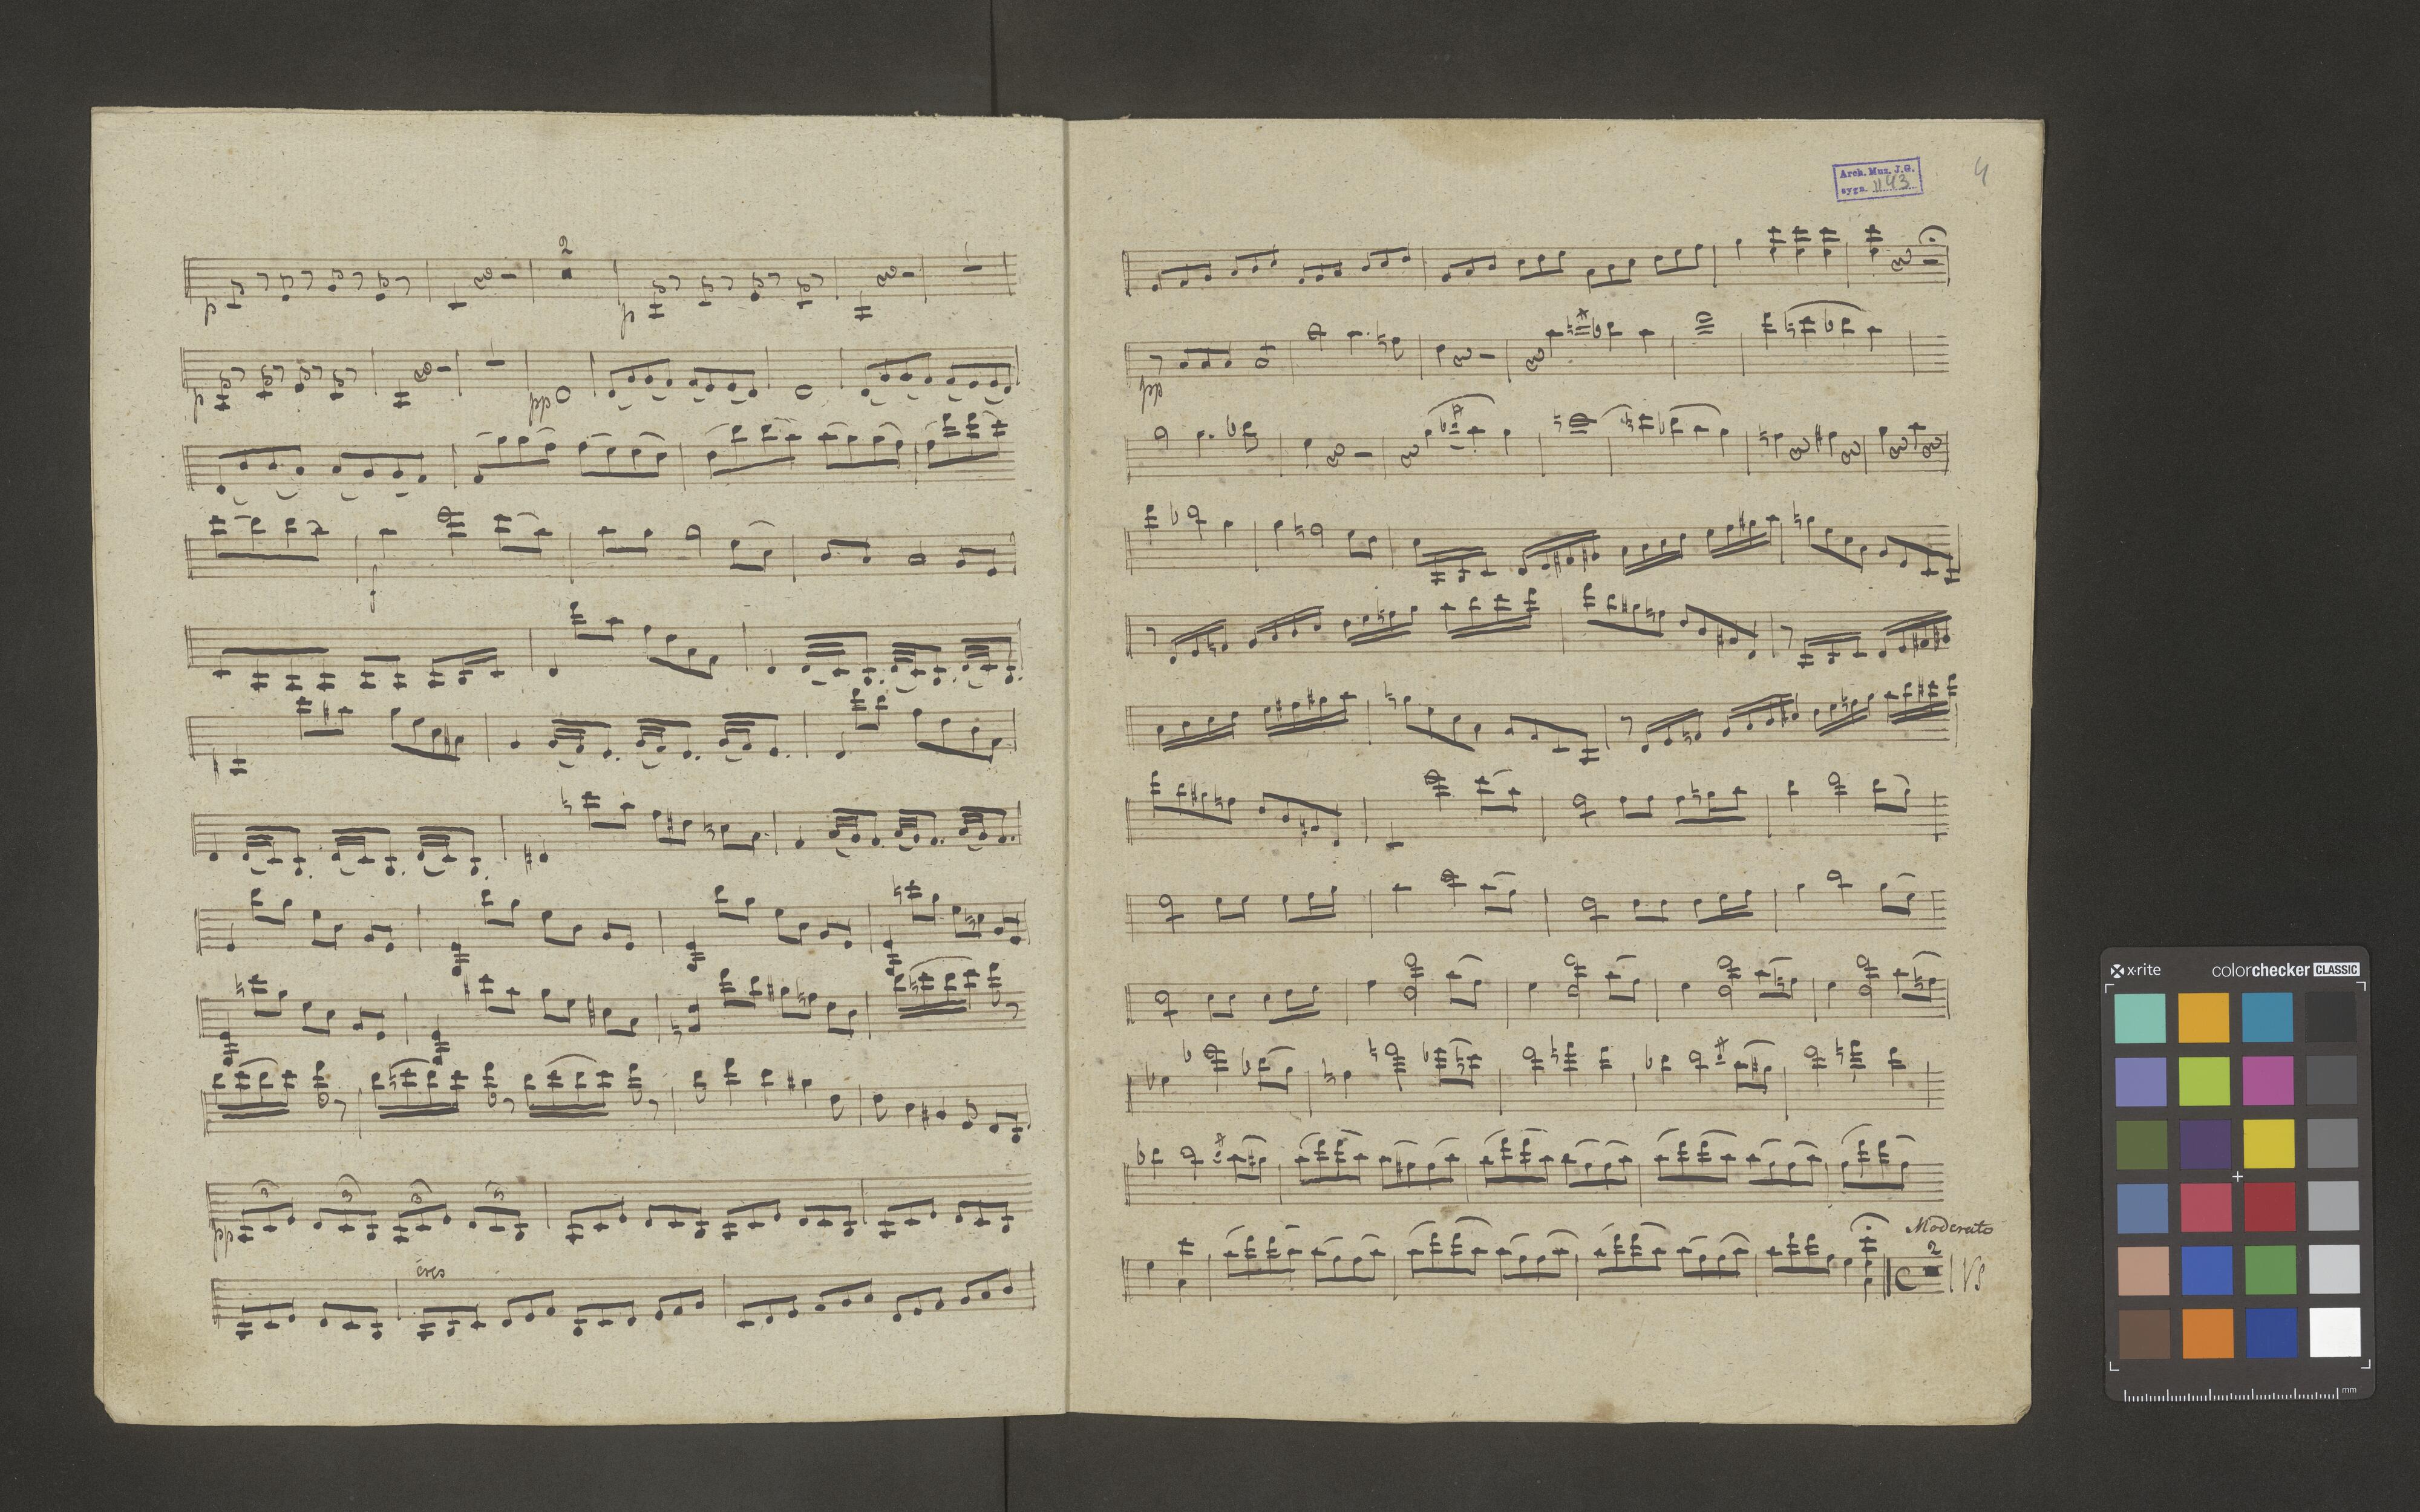 2
p
p
p
pp
f
3 3 3 3
pp
cres
Arch. Muz. J.G.
sygn. 1143
4
pp
Moderato
2
VS
x-rite colorchecker CLASSIC
mm